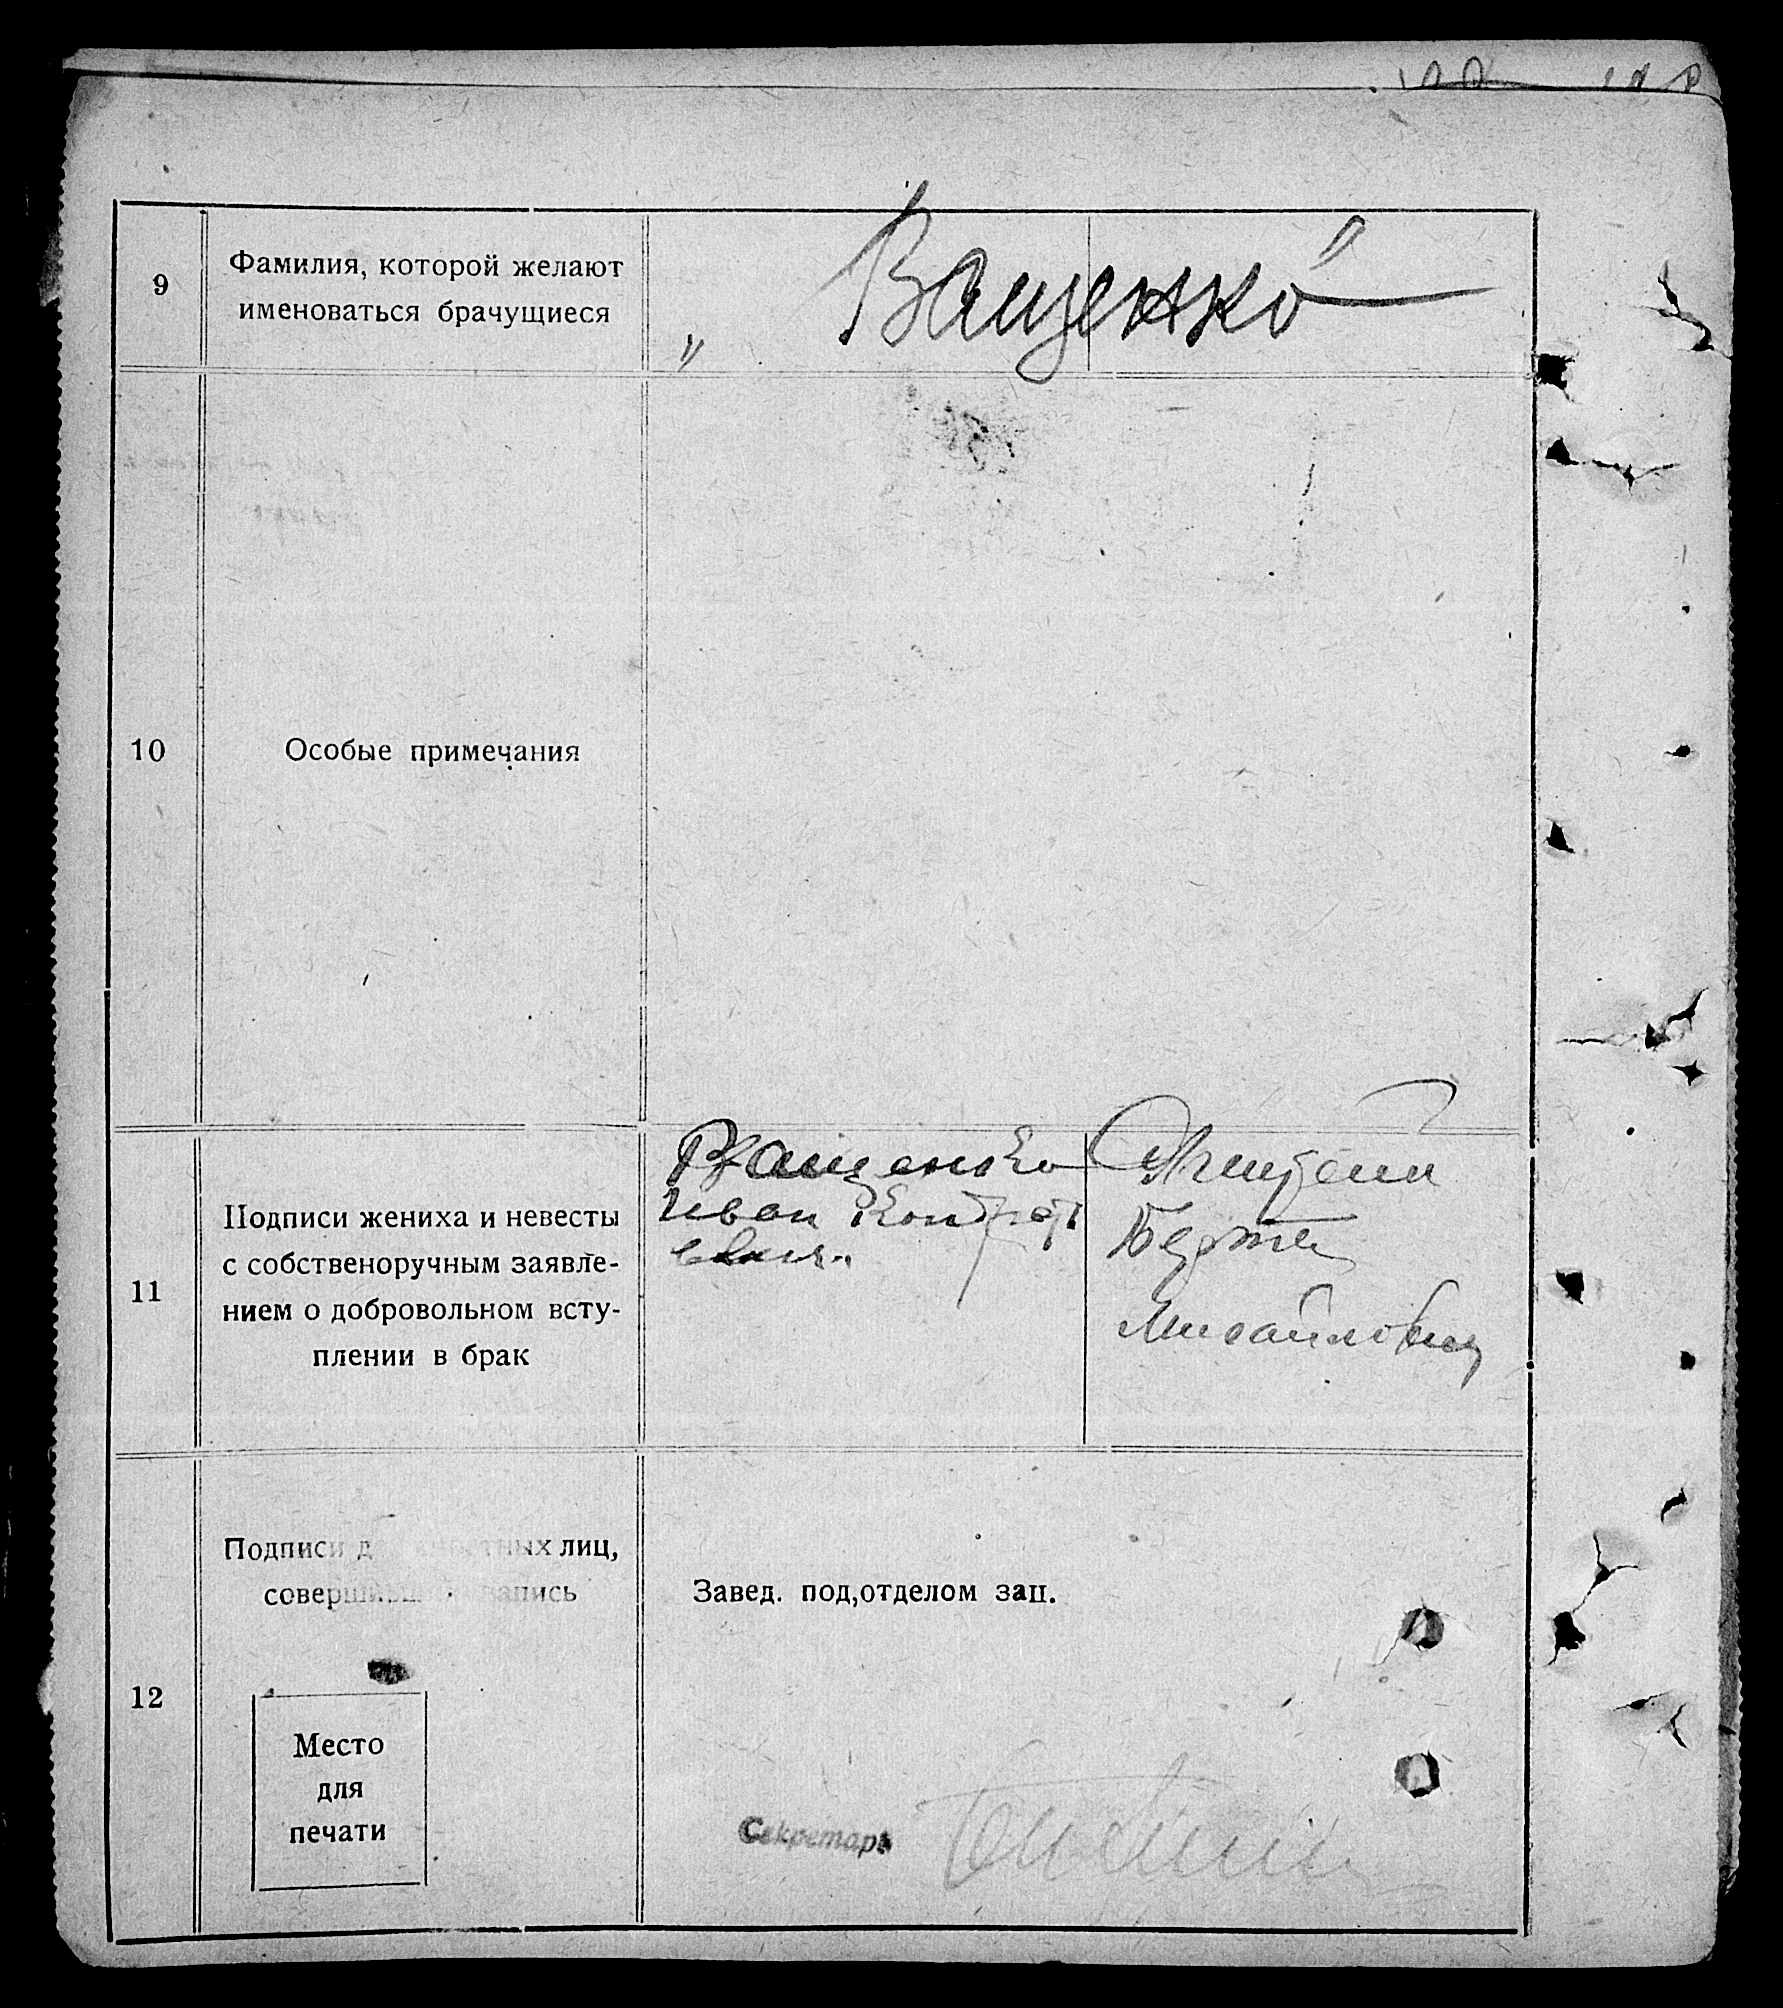 9
Фамилия, которой желают
именоваться брачущиеся
„ Ващенко "
10
Особые примечания
11
Подписи жениха и невесты
с собственоручным заявле-
нием о добровольном всту-
плении в брак
Ващенко
Иван Кондрат
евич
Берта
Михайловна
12
Подписи должностных лиц,
совершивших запись
Место
для
печати
Завед. под,отделом зап.
Секретарь